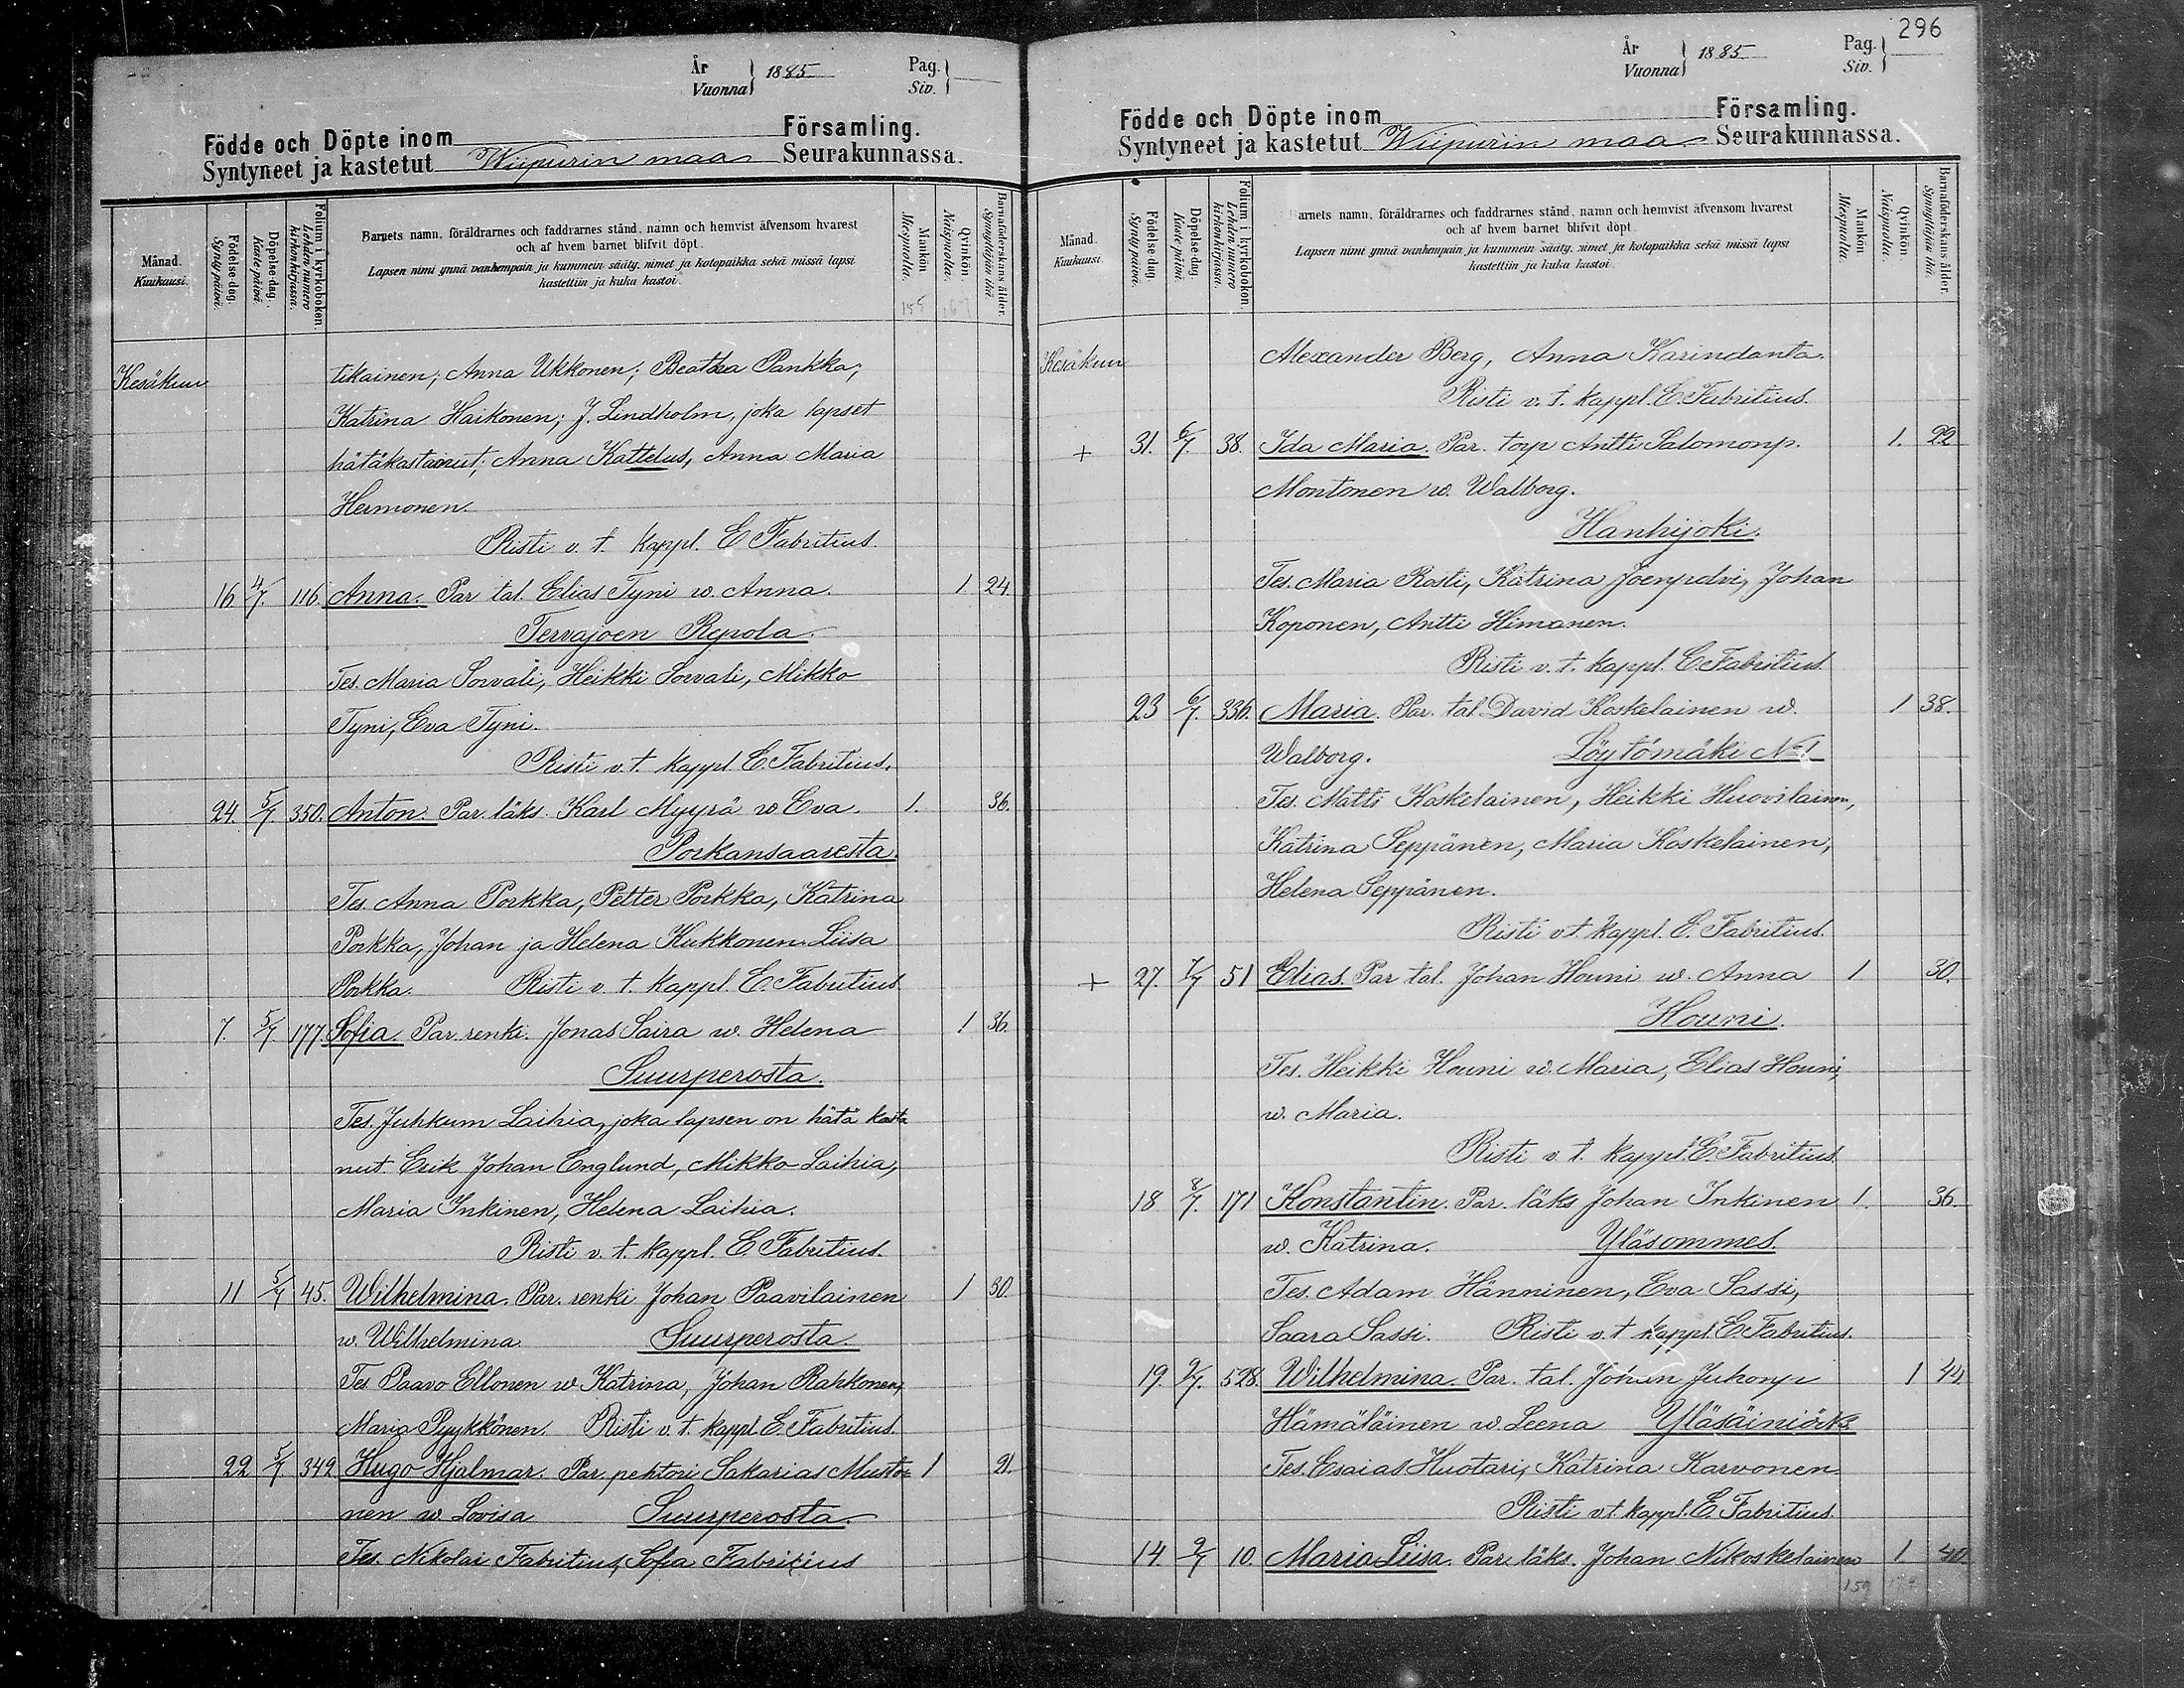 År
Vuonna
1885
Pag.
Siv.
Födde och Döpte inom Församling.
Syntyneet ja kastetut Wiipurin maa Seurakunnassa.
Månad.
Kuukausi.
Födelse-dag.
Synty päivä.
Döpelse-dag.
Kaste päivä.
Folium i kyrkoboken.
Lehden numero kirkonkirjassa.
Barnets namn, föräldrarnes och faddrarnes stånd, namn och hemvist äfvensom hvarest
och af hvem barnet blifvit döpt.
Lapsen nimi ynnä vanhempain ja kummein sääty, nimet ja kotopaikka sekä missä lapsi
kastettiin ja kuka kastoi.
Mankön.
Miespuolta.
Qvinkön.
Naispuolta.
Barnaföderskans ålder.
Synnyttäjän ikä.
Kesäkuu tikainen; Anna Ukkonen; Beatha Pankka;
Katrina Haikonen; J. Lindholm, joka lapset
hätäkastanut; Anna Kattelus, Anna Maria
Hermonen.
Risti v. t. kappl. E Fabritius.
16 4/7. 116. Anna. Par tal. Elias Tyni w. Anna. 1 24.
Tervajoen Repola.
Tes. Maria Sorvali, Heikki Sorvali, Mikko
Tyni, Eva Tyni.
Risti v. t. kappl. E. Fabritius.
24. 5/7. 350. Anton. Par. läks. Karl Myyrä w Eva. 1. 36.
Porkansaaresta.
Tes. Anna Porkka, Petter Porkka, Katrina
Porkka, Johan ja Helena Kukkonen. Liisa
Porkka. Risti v. t. kappl. E. Fabritius
7. 5/7. 177. Sofia. Par. renki. Jonas Saira w. Helena 1 36.
Suurperosta.
Tes. Juhkum Laihia, joka lapsen on hätä kasta
nut. Erik Johan Englund, Mikko Laihia,
Maria Inkinen, Helena Laihia.
Risti v. t. kappl. E. Fabritius.
11 5/7 45. Wilhelmina. Par. renki Johan Paavilainen 1 30.
w. Wilhelmina. Suurperosta.
Tes Paavo Ellonen w Katrina, Johan Rahkonen,
Maria Pyykkönen. Risti v. t. kappl. E. Fabritius.
22 5/7. 342 Hugo Hjalmar. Par. pehtori Sakarias Musto- 1 21.
nen w Lovisa Suurperosta.
Tes. Nikolai Fabritius, Sofia Fabricius
296
År
Vuonna
1885
Pag.
Siv.
Födde och Döpte inom Församling.
Syntyneet ja kastetut Wiipurin maa Seurakunnassa.
Månad.
Kuukausi
Födelse-dag.
Synty päivä.
Döpelse-dag.
Kaste päivä.
Folium i kyrkoboken.
Lehden numero kirkonkirjassa.
arnets namn, föräldrarnes och faddrarnes stånd, namn och hemvist äfvensom hvarest
och af hvem barnet blifvit döpt.
Lapsen nimi ynnä vanhempain ja kummein sääty, nimet ja kotopaikka sekä missä lapsi
kastettiin ja kuka kastoi.
Mankön
Miespuolta.
Qvinkön.
Naispuolta.
Barnaföderskans ålder.
Synnyttäjän ikä.
Kesäkuu Alexander Berg, Anna Karindanta.
Risti v. t. kappl. E. Fabritius.
+ 31. 6/7. 38. Ida Maria. Par. torp Antti Salomonp. 1. 22
Montonen w. Walborg.
Hanhijoki.
Tes. Maria Rasti, Katrina Joenpolvi, Johan
Koponen, Antti Himanen.
Risti v. t. kappl. E. Fabritius.
23 6/7. 336. Maria. Par. tal David Koskelainen w. 1 38.
Walborg. Löytömäki No 1
Tes. Matti Koskelainen, Heikki Huovilainen,
Katrina Seppänen, Maria Koskelainen,
Helena Seppänen.
Risti v t. kappl. E. Fabritius.
+ 27. 7/7 51 Elias. Par tal. Johan Houni w. Anna 1 30.
Houni.
Tes. Heikki Houni w. Maria, Elias Houni,
w. Maria.
Risti v. t. kappl. E. Fabritius.
18 8/7. 171 Konstantin. Par. läks Johan Inkinen 1. 36.
w. Katrina. Yläsommes.
Tes. Adam Hänninen, Eva Sassi,
Saara Sassi. Risti v. t kappl. E. Fabritius.
19. 9/7. 528. Wilhelmina. Par. tal. Johan Juhonp 1 44.
Hämäläinen w. Leena Yläsäiniö
Tes. Esaias Huotari, Katrina Karvonen.
Risti v t. kappl. E. Fabritius.
14 9/7 10. Maria Liisa. Par. läks. Johan Nikoskelainen 1 40.
159